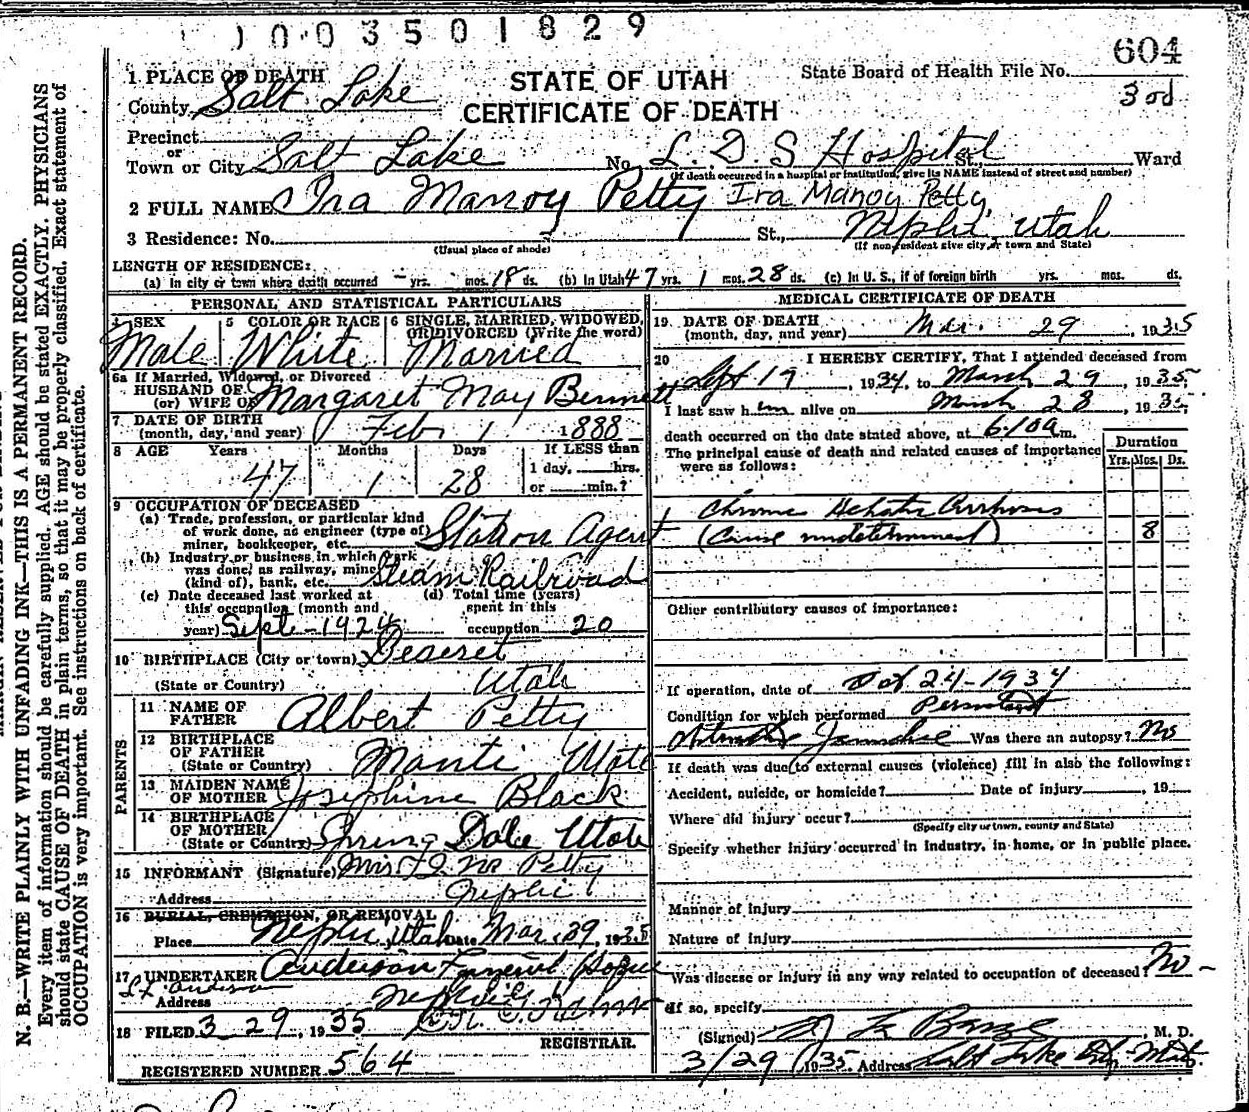 1003501829
604
1 PLACE OF DEATH
STATE OF UTAH
State Board of Health File No.
3rd
County Salt Lake
CERTIFICATE OF DEATH
Precinct
or
Town or City Salt Lake No. L. D. S Hospital St. Ward
(If death occurred in a hospital or institution, give its NAME instead of street and number)
2 FULL NAME Ira Manoy Petty Ira Manoy Petty
3 Residence: No. St., Nephi, Utah
(Usual place of abode) (If non-resident give city, or town and State)
LENGTH OF RESIDENCE:
(a) In city or town where death occurred - yrs. mos. 18 ds. (b) In Utah 47 yrs. 1 mos. 28 ds. (c) In U. S., if of foreign birth yrs. mos. ds.
PERSONAL AND STATISTICAL PARTICULARS
4 SEX Male
5 COLOR OR RACE White
6 SINGLE, MARRIED, WIDOWED, OR DIVORCED (Write the word) Married
6a If Married, Widowed, or Divorced
HUSBAND OF
(or) WIFE OF Margaret May Bennett
7 DATE OF BIRTH
(month, day, and year) Feb 1 1888
8 AGE Years Months Days If LESS than
47 1 28 1 day, hrs.
or min.?
9 OCCUPATION OF DECEASED
(a) Trade, profession, or particular kind
of work done, as engineer (type of)
miner, bookkeeper, etc. Station Agent
(b) Industry or business in which work
was done, as railway, mine
(kind of), bank, etc. Steam Railroad
(c) Date deceased last worked at
this occupation (month and
year) Sept-1924
(d) Total time (years)
spent in this
occupation 20
10 BIRTHPLACE (City or town) Deseret
(State or Country) Utah
PARENTS
11 NAME OF
FATHER Albert Petty
12 BIRTHPLACE
OF FATHER
(State or Country) Manti Utah
13 MAIDEN NAME
OF MOTHER Josephine Black
14 BIRTHPLACE
OF MOTHER
(State or Country) Spring Dale Utah
15 INFORMANT (Signature) Mrs Petty
Address Nephi
16 BURIAL, CREMATION, OR REMOVAL
Place Nephi, Utah Date Mar 29, 1935
17 UNDERTAKER Anderson Funeral Home
Anderson
Address Nephi
18 FILED 3 29, 1935
REGISTRAR.
REGISTERED NUMBER 564
MEDICAL CERTIFICATE OF DEATH
19 DATE OF DEATH
(month, day, and year) Mar. 29, 1935
20 I HEREBY CERTIFY, That I attended deceased from
Sept 19, 1934, to March 29, 1935
I last saw him alive on March 28, 1935
death occurred on the date stated above, at 6:10 a m.
The principal cause of death and related causes of importance
were as follows:
Duration
Yrs. Mos. Ds.
Chronic Hepatic Cirrhosis
(Cause undetermined) 8
Other contributory causes of importance:
If operation, date of Oct 24-1934
Condition for which performed Persistent
Jaundice Was there an autopsy? No
If death was due to external causes (violence) fill in also the following:
Accident, suicide, or homicide? Date of injury , 19
Where did injury occur?
(Specify city or town, county and State)
Specify whether injury occurred in industry, in home, or in public place.
Manner of injury
Nature of injury
Was disease or injury in any way related to occupation of deceased? No
If so, specify
(Signed) M. D.
3/29, 1935. Address Salt Lake City, Utah
N. B.—WRITE PLAINLY WITH UNFADING INK—THIS IS A PERMANENT RECORD.
Every item of information should be carefully supplied. AGE should be stated EXACTLY. PHYSICIANS
should state CAUSE OF DEATH in plain terms, so that it may be properly classified. Exact statement of
OCCUPATION is very important. See instructions on back of certificate.